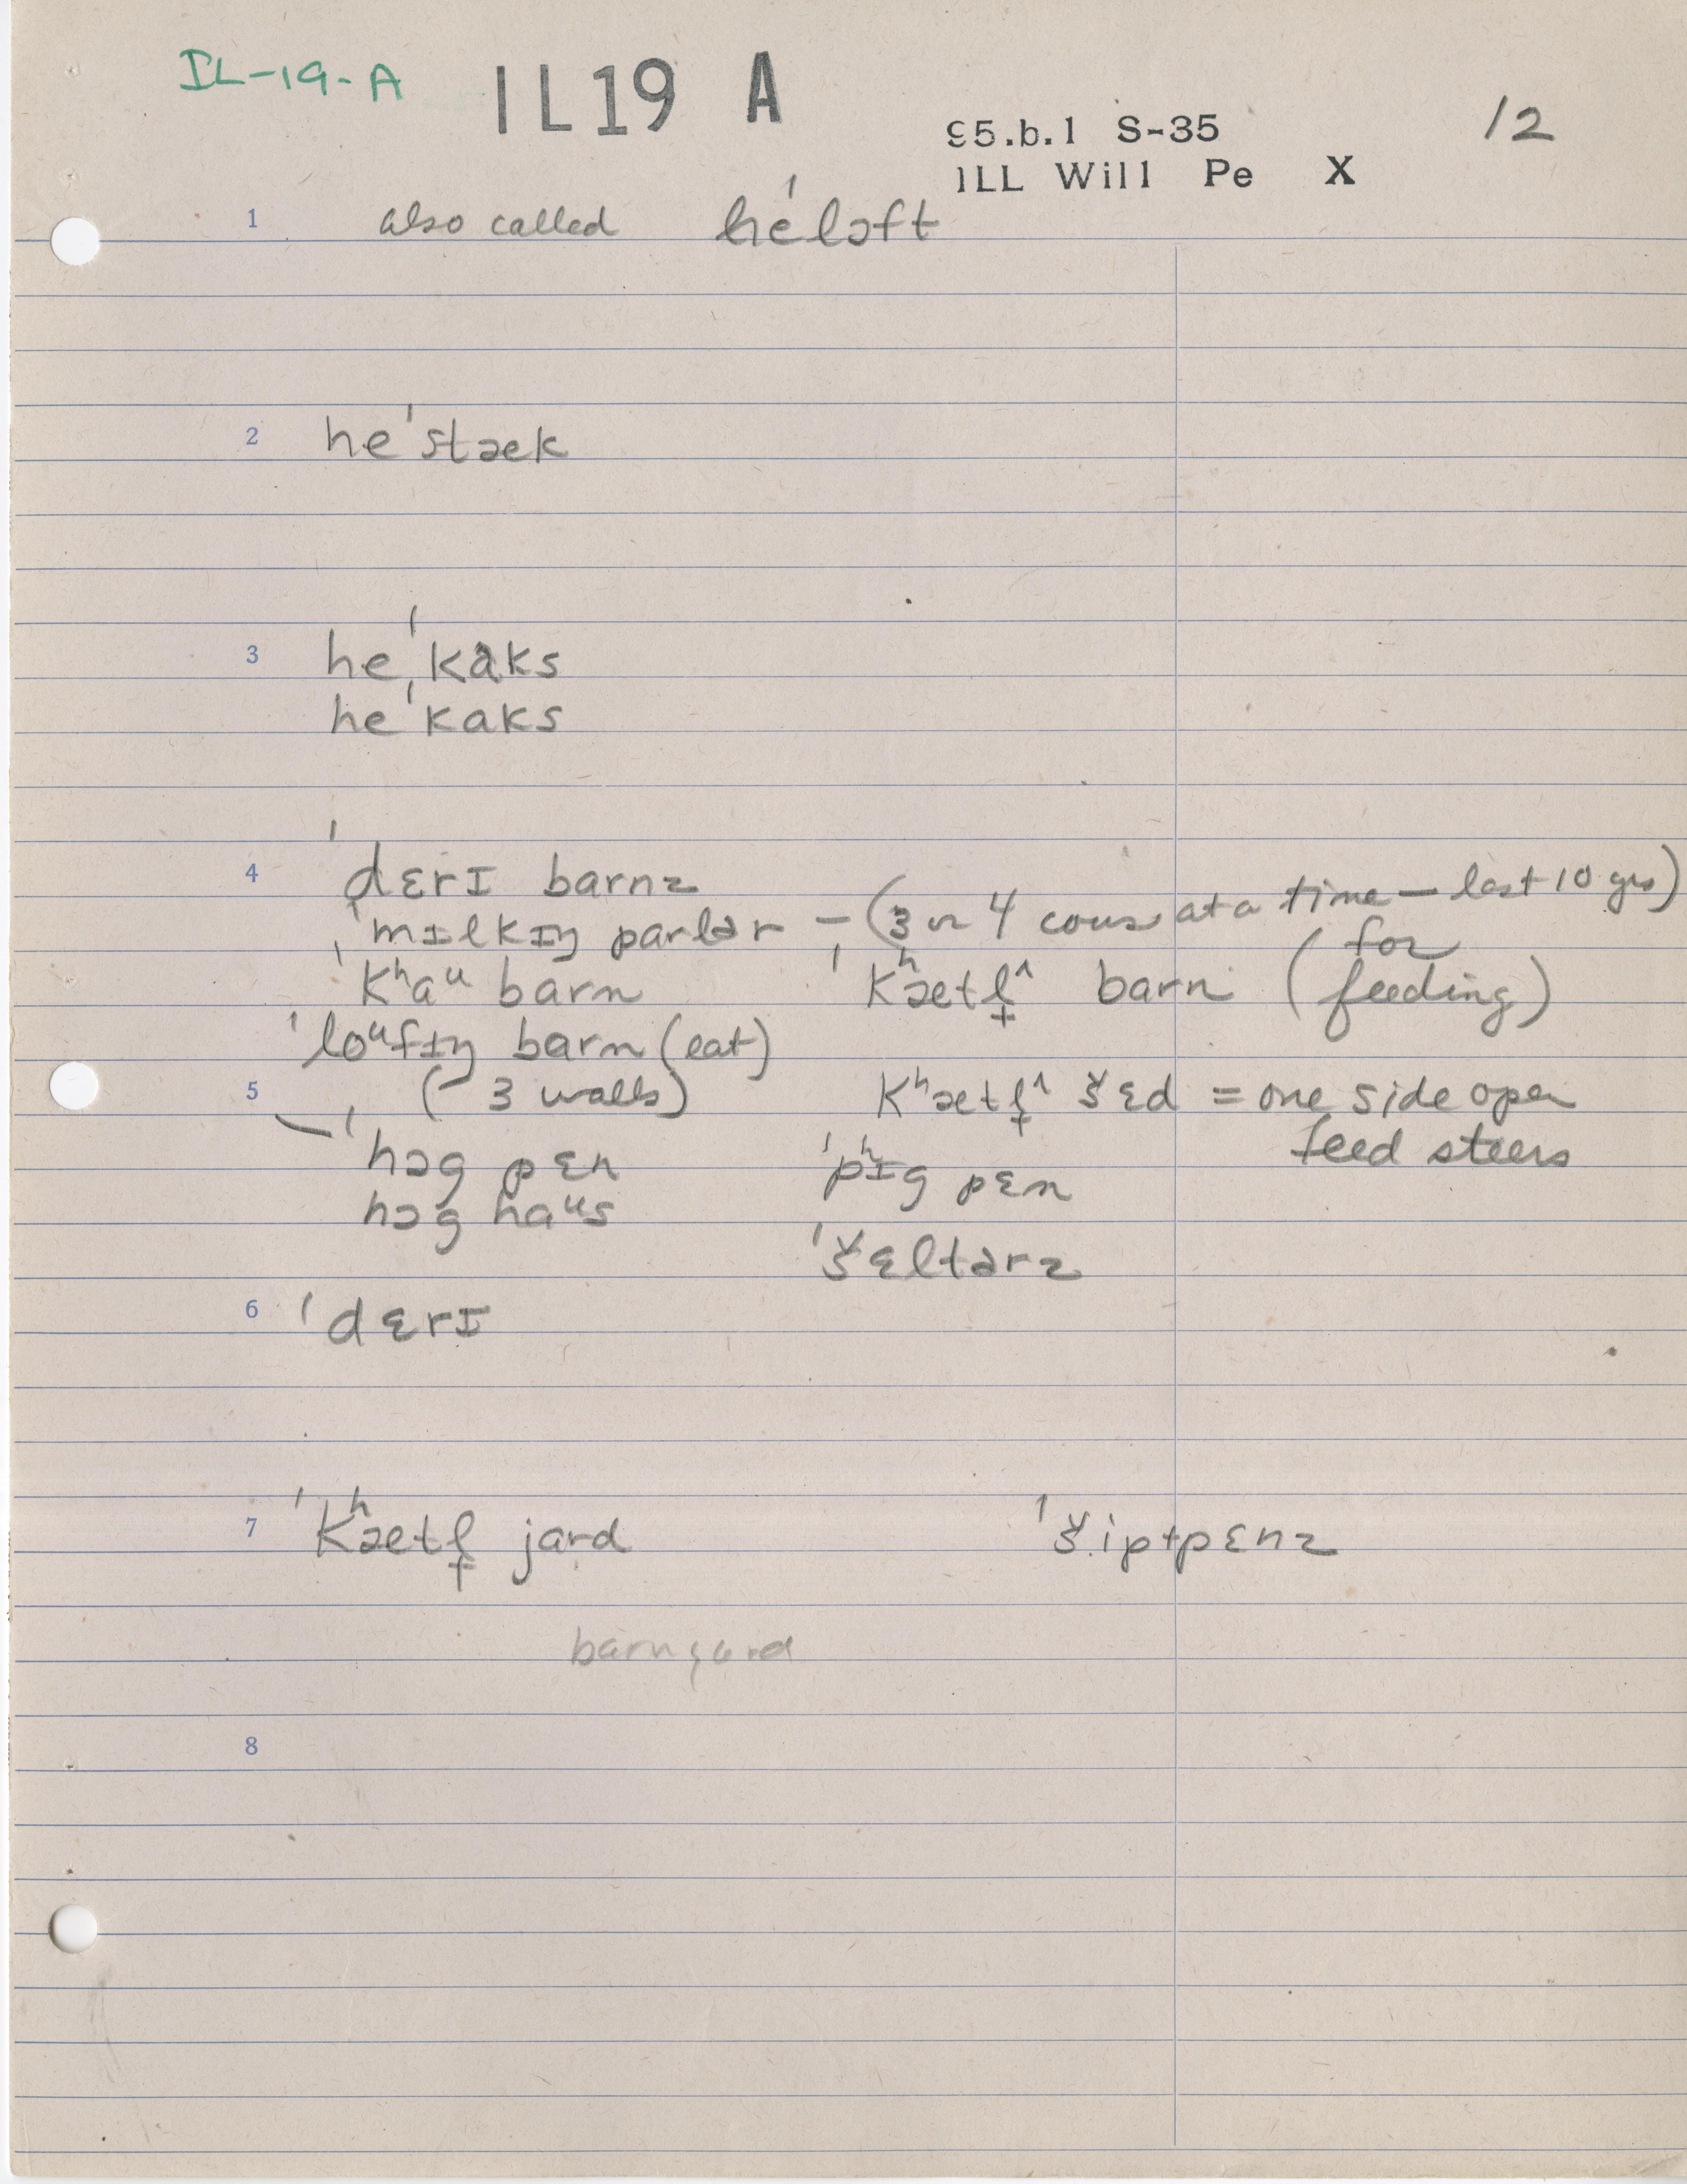 IL-19-A IL19 A
95.b.1 S-35 12
ILL Will Pe X
1 also called héˈlɔft
2 heˈstæk
3 heˈkɑks
heˈkɑks
4 ˈdɛrɪ barnz
ˈmɪlkɪŋ parlər – (3 or 4 cows at a time — last 10 yrs)
ˈkʰaᵘ barn ˈkʰætɫ^ barn (for feeding)
ˈloᵘfɪŋ barn (eat)
5 (– 3 walls) kʰætɫ^ šɛd = one side open
feed steers
ˈhɔg pɛn ˈpʰɪg pɛn
hɔg haᵘs
ˈšɛltərz
6 ˈdɛrɪ
7 ˈkʰætɫ jard ˈšiptpɛnz
barnyard
8